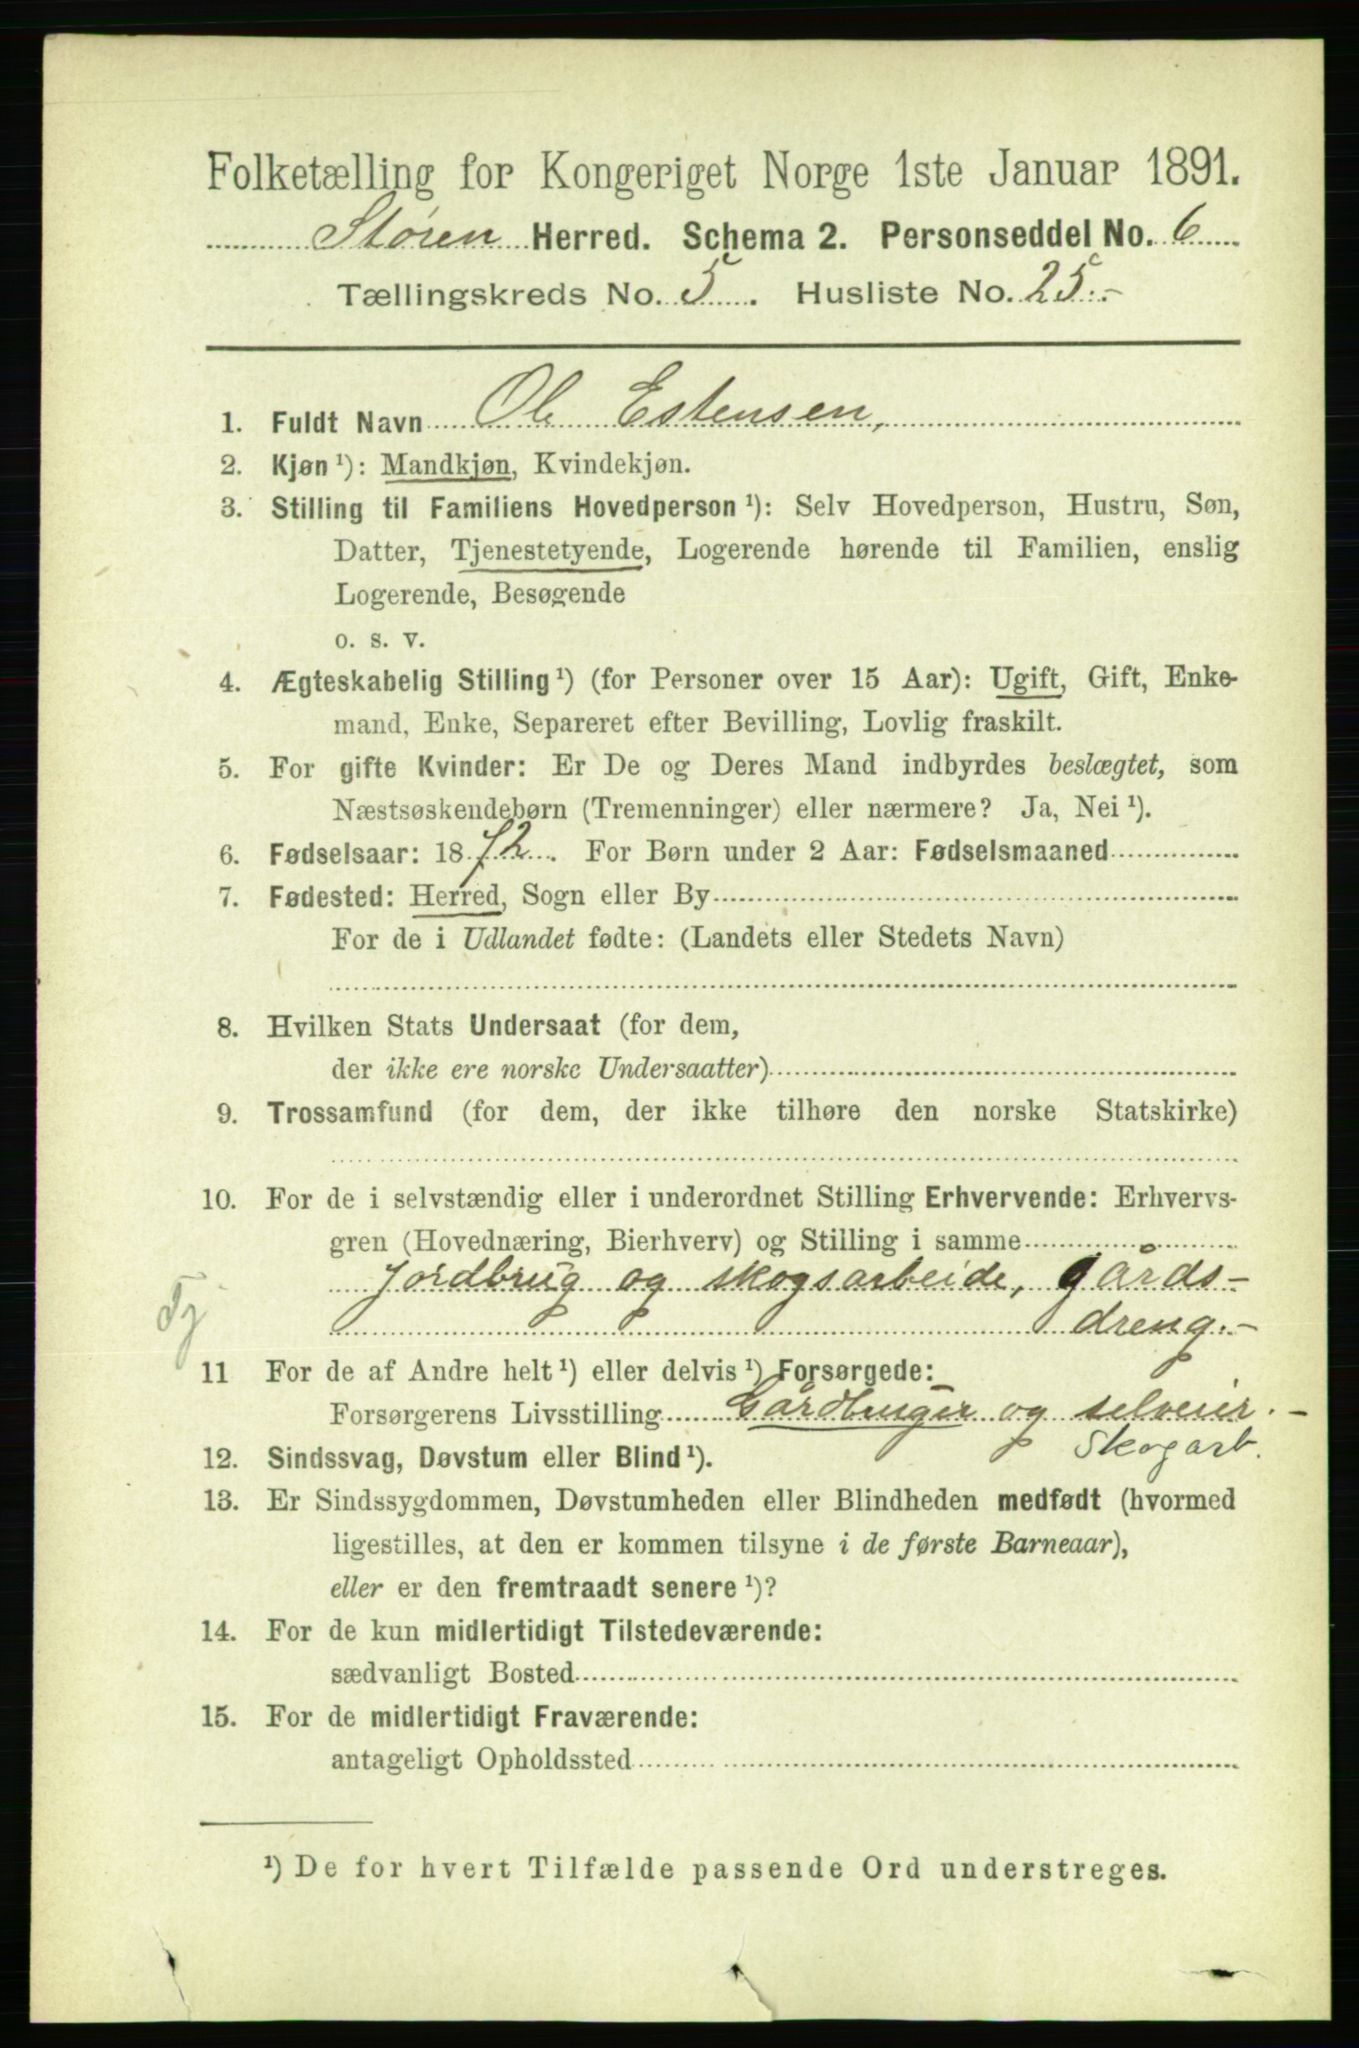 Folketælling for Kongeriget Norge 1ste Januar 1891.
Støren Herred. Schema 2. Personseddel No. 6
Tællingskreds No. 5. Husliste No. 25.-
1. Fuldt Navn Ole Estensen,
2. Kjøn ¹): Mandkjøn, Kvindekjøn.
3. Stilling til Familiens Hovedperson ¹): Selv Hovedperson, Hustru, Søn,
Datter, Tjenestetyende, Logerende hørende til Familien, enslig
Logerende, Besøgende
o. s. v.
4. Ægteskabelig Stilling ¹) (for Personer over 15 Aar): Ugift, Gift, Enke-
mand, Enke, Separeret efter Bevilling, Lovlig fraskilt.
5. For gifte Kvinder: Er De og Deres Mand indbyrdes beslægtet, som
Næstsøskendebørn (Tremenninger) eller nærmere? Ja, Nei ¹).
6. Fødselsaar: 1872. For Børn under 2 Aar: Fødselsmaaned
7. Fødested: Herred, Sogn eller By
For de i Udlandet fødte: (Landets eller Stedets Navn)
8. Hvilken Stats Undersaat (for dem,
der ikke ere norske Undersaatter)
9. Trossamfund (for dem, der ikke tilhøre den norske Statskirke)
10. For de i selvstændig eller i underordnet Stilling Erhvervende: Erhvervs-
gren (Hovednæring, Bierhverv) og Stilling i samme
Jordbrug og skogsarbeide, gårds-
Tj dreng.-
11 For de af Andre helt ¹) eller delvis ¹) Forsørgede:
Forsørgerens Livsstilling Gårdbruger og selveier.-
Skogarb.
12. Sindssvag, Døvstum eller Blind ¹).
13. Er Sindssygdommen, Døvstumheden eller Blindheden medfødt (hvormed
ligestilles, at den er kommen tilsyne i de første Barneaar),
eller er den fremtraadt senere ¹)?
14. For de kun midlertidigt Tilstedeværende:
sædvanligt Bosted
15. For de midlertidigt Fraværende:
antageligt Opholdssted
¹) De for hvert Tilfælde passende Ord understreges.